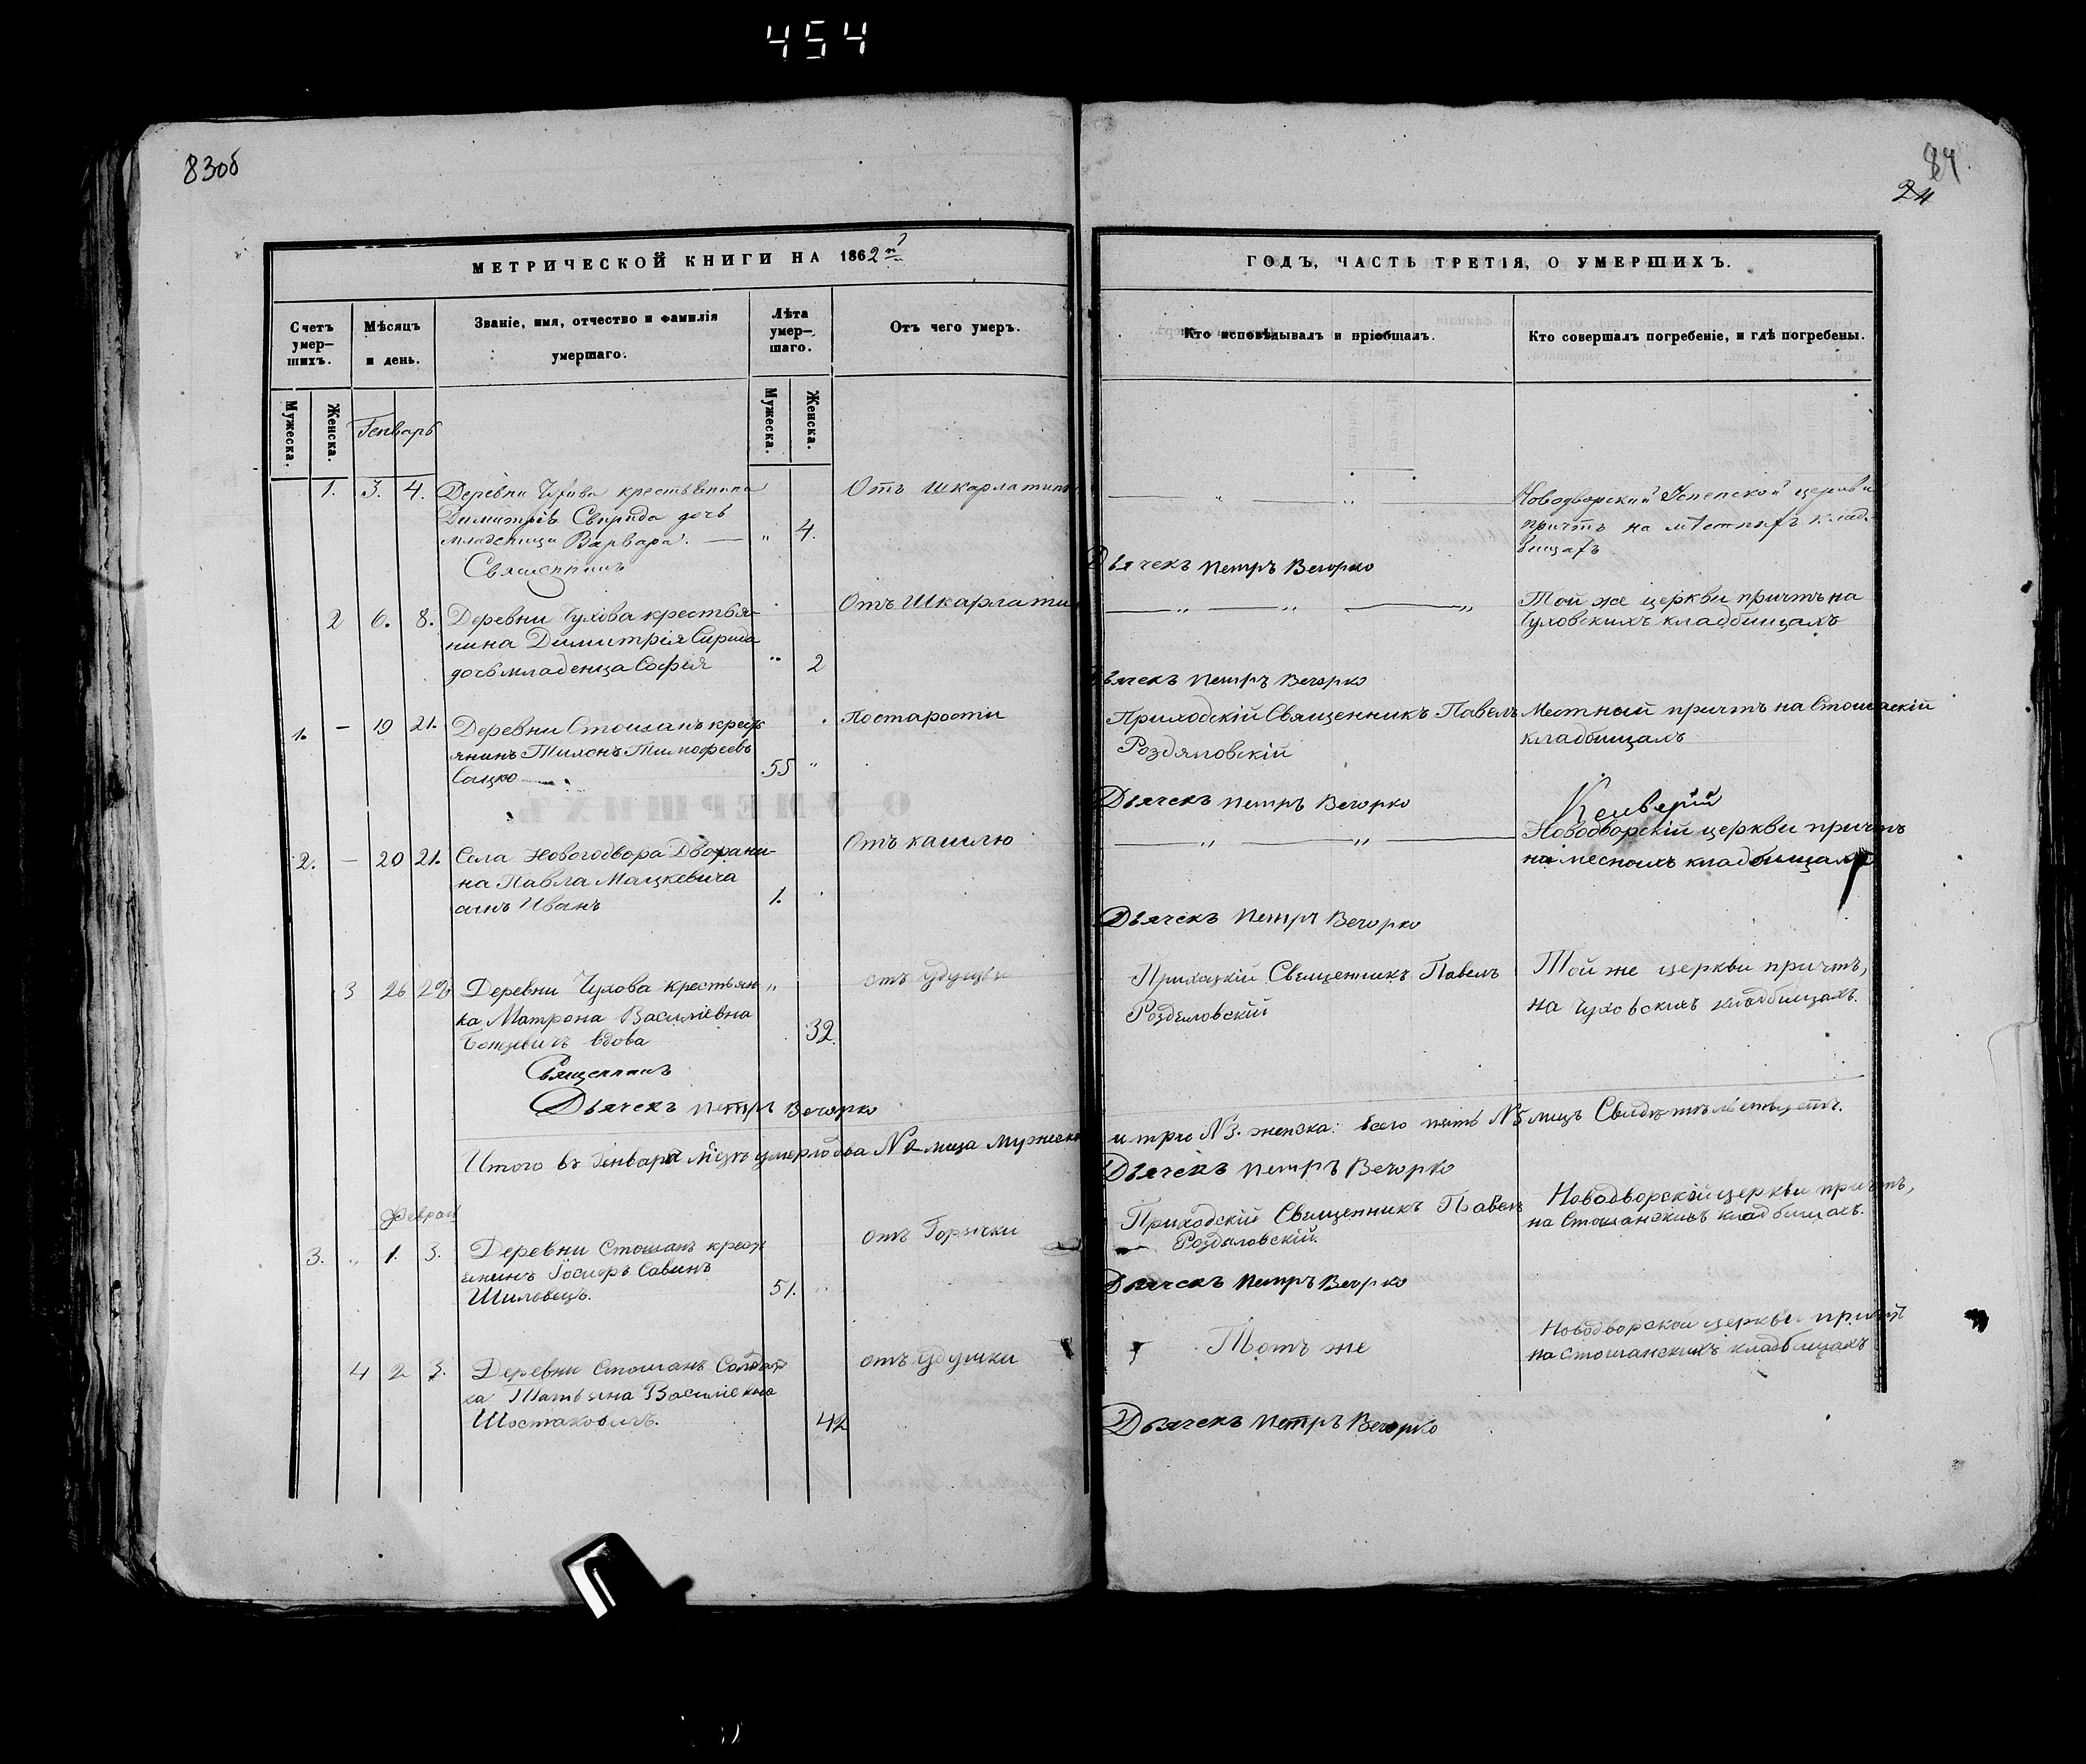 454
83об
84
24
МЕТРИЧЕСКОЙ КНИГИ НА 1862й
ГОДЪ, ЧАСТЬ ТРЕТІЯ, О УМЕРШИХЪ.
Счетъ умер-
шихъ.
Мѣсяцъ
и день.
Званіе, имя, отчество и фамилія
умершаго.
Лѣта
умер-
шаго.
Отъ чего умеръ.
Кто исповѣдывалъ и пріобщалъ.
Кто совершалъ погребеніе, и гдѣ погребены.
Мужеска.
Женска.
Генварь
Мужеска.
Женска.
1. 3. 4. Деревни Чухова крестьянина
Димитрія Свирида дочь
младеница Варвара. — „ 4.
Отъ шкарлатины
Новодворский Успенской церкви
причтъ на мѣстныхъ клад-
бищахъ
Священникъ
Дьячекъ Петръ Вечорко
2 6. 8. Деревни Чухова крестья-
нина Димитрія Свирида
дочь младенца Софія „ 2
Отъ Шкарлатины
Той же церкви причтъ на
Чуховскихъ кладбищахъ
Дьячекъ Петръ Вечорко
1. — 19 21. Деревни Стошанъ крестъ
янинъ Тихонъ Тимофеевъ
Сацко 55 „
По старости
Приходскій Священникъ Павелъ
Роздяловскій
Местный причтъ на Стошаскій
кладбищахъ
Дьячекъ Петръ Вечорко
2. — 20 21. Села Новогодвора Дворяни-
на Павла Мацкевича
сынъ Иванъ 1.
Отъ кашлю
Новодворскій церкви причтъ
на месныхъ кладбищахъ
Дьячекъ Петръ Вечорко
3 26 28 Деревни Чухова крестьян „
ка Матрона Василіевна
вдова 32
отъ удушья
Приходскій Священникъ Павелъ
Роздяловскій
Той же церкви причтъ,
на Чуховскихъ кладбищахъ.
Священникъ
Дьячекъ Петръ Вечорко
Итого въ Генварѣ мѣсяцѣ умерло два № 2 лица мужеска
и три № 3. женска: всего пять № 5 лицъ Свидѣтельствуетъ.
Дьячекъ Петръ Вечорко
Февраль
3. „ 1. 3. Деревни Стошанъ крест
янинъ Іосифъ Савинъ
Шиловецъ. 51. „
отъ Горячки
Приходскій Священникъ Павелъ
Роздяловскій.
Новодворскій церкви причтъ,
на Стошанскихъ кладбищахъ.
Дьячекъ Петръ Вечорко
4 2 3. Деревни Стошанъ Солдат
ка Татьяна Василіевна
Шостаковичъ. 42
отъ удушки
Тотъ же
Новодворской церкви причтъ
на Стошанскихъ кладбищахъ
Дьячекъ Петръ Вечорко